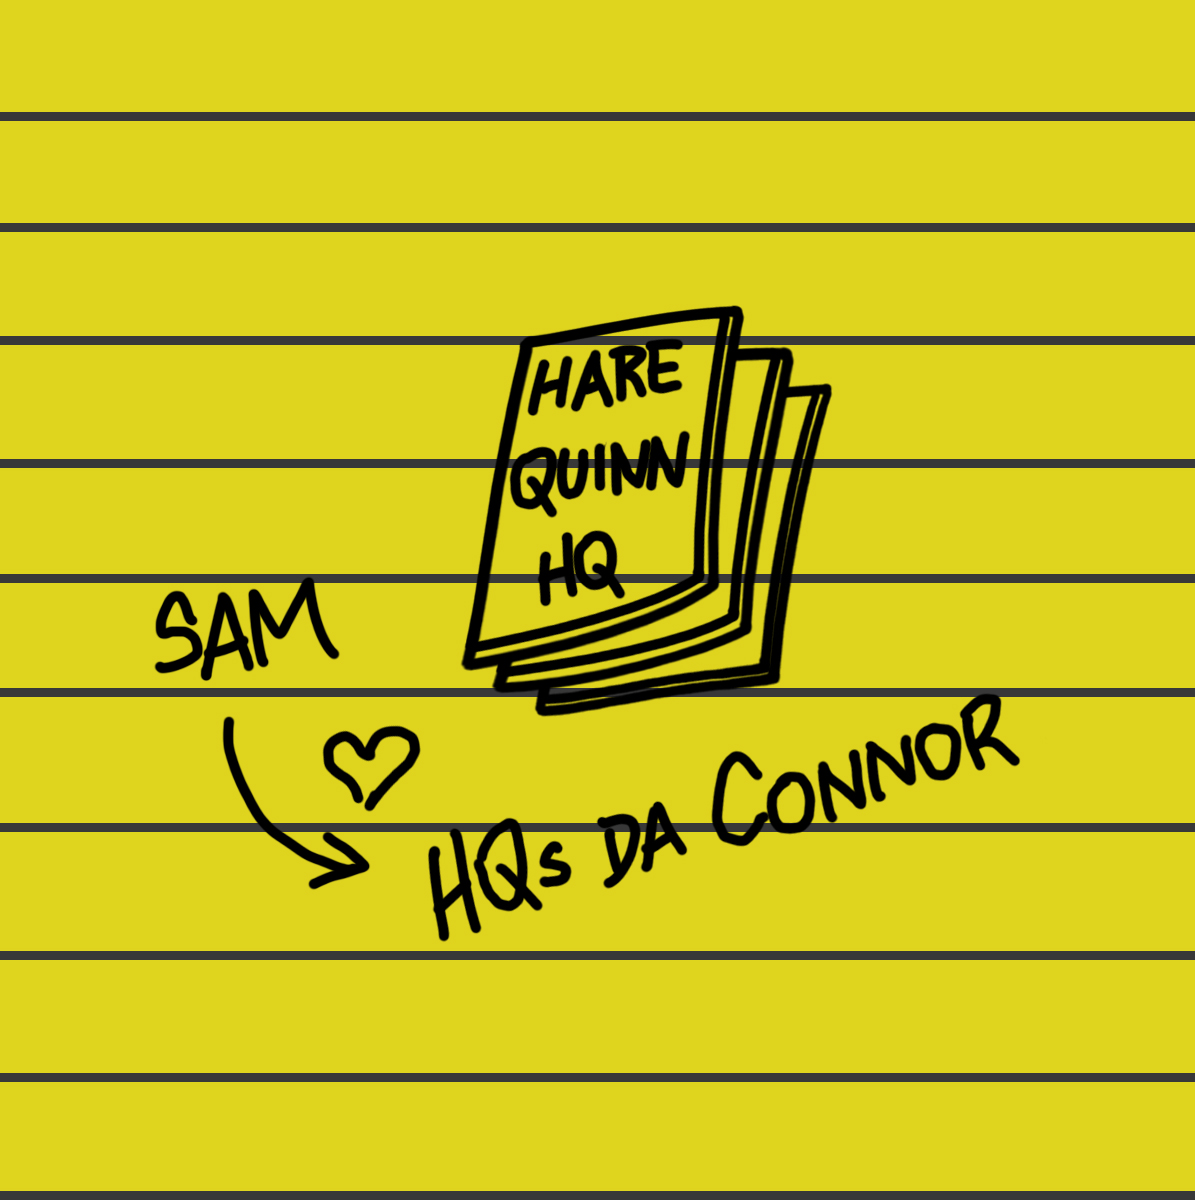 HARE
QUINN
HQ
SAM
HQs DA CONNOR